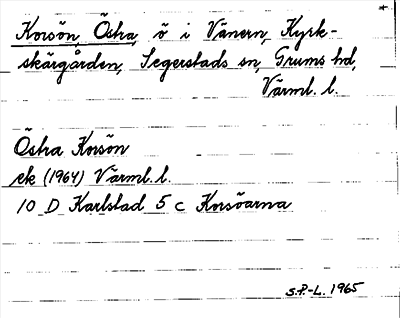 Korsön, Östra, ö i Vänern, Kyrk-
skärgården, Segerstads sn, Grums hd,
Värml. l.
Östra Korsön
ek (1964) Värml. l.
10 D Karlstad 5 c Korsöarna
S.P.-L. 1965